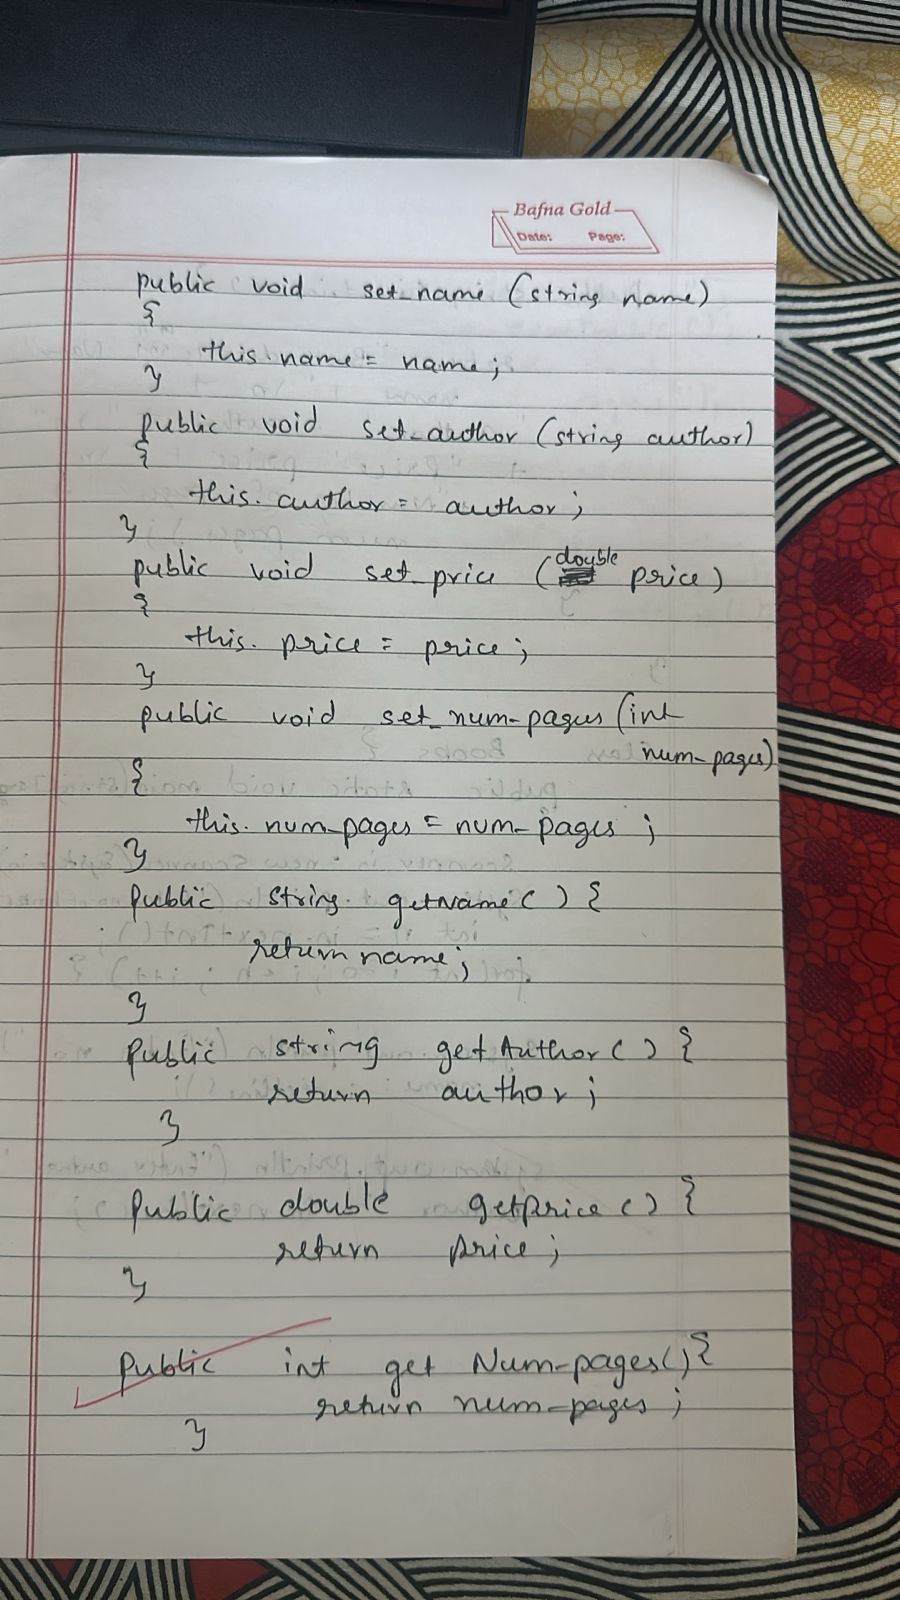 Bafna Gold
Date: Page:
public void set_name (string name)
{
this.name = name;
}
public void set_author (string author)
{
this. author = author;
}
public void set_price (double price)
{
this. price = price;
}
public void set_num-pages (int
num-pages)
{
this. num_pages = num-pages ;
}
Public string getName ( ) {
return name;
}
Public string getAuthor ( ) {
return author;
}
Public double getprice ( ) {
return price;
}
Public int get Num-pages() {
return num-pages ;
}